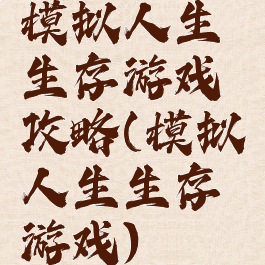 模拟人生
生存游戏
攻略(模拟
人生生存
游戏)